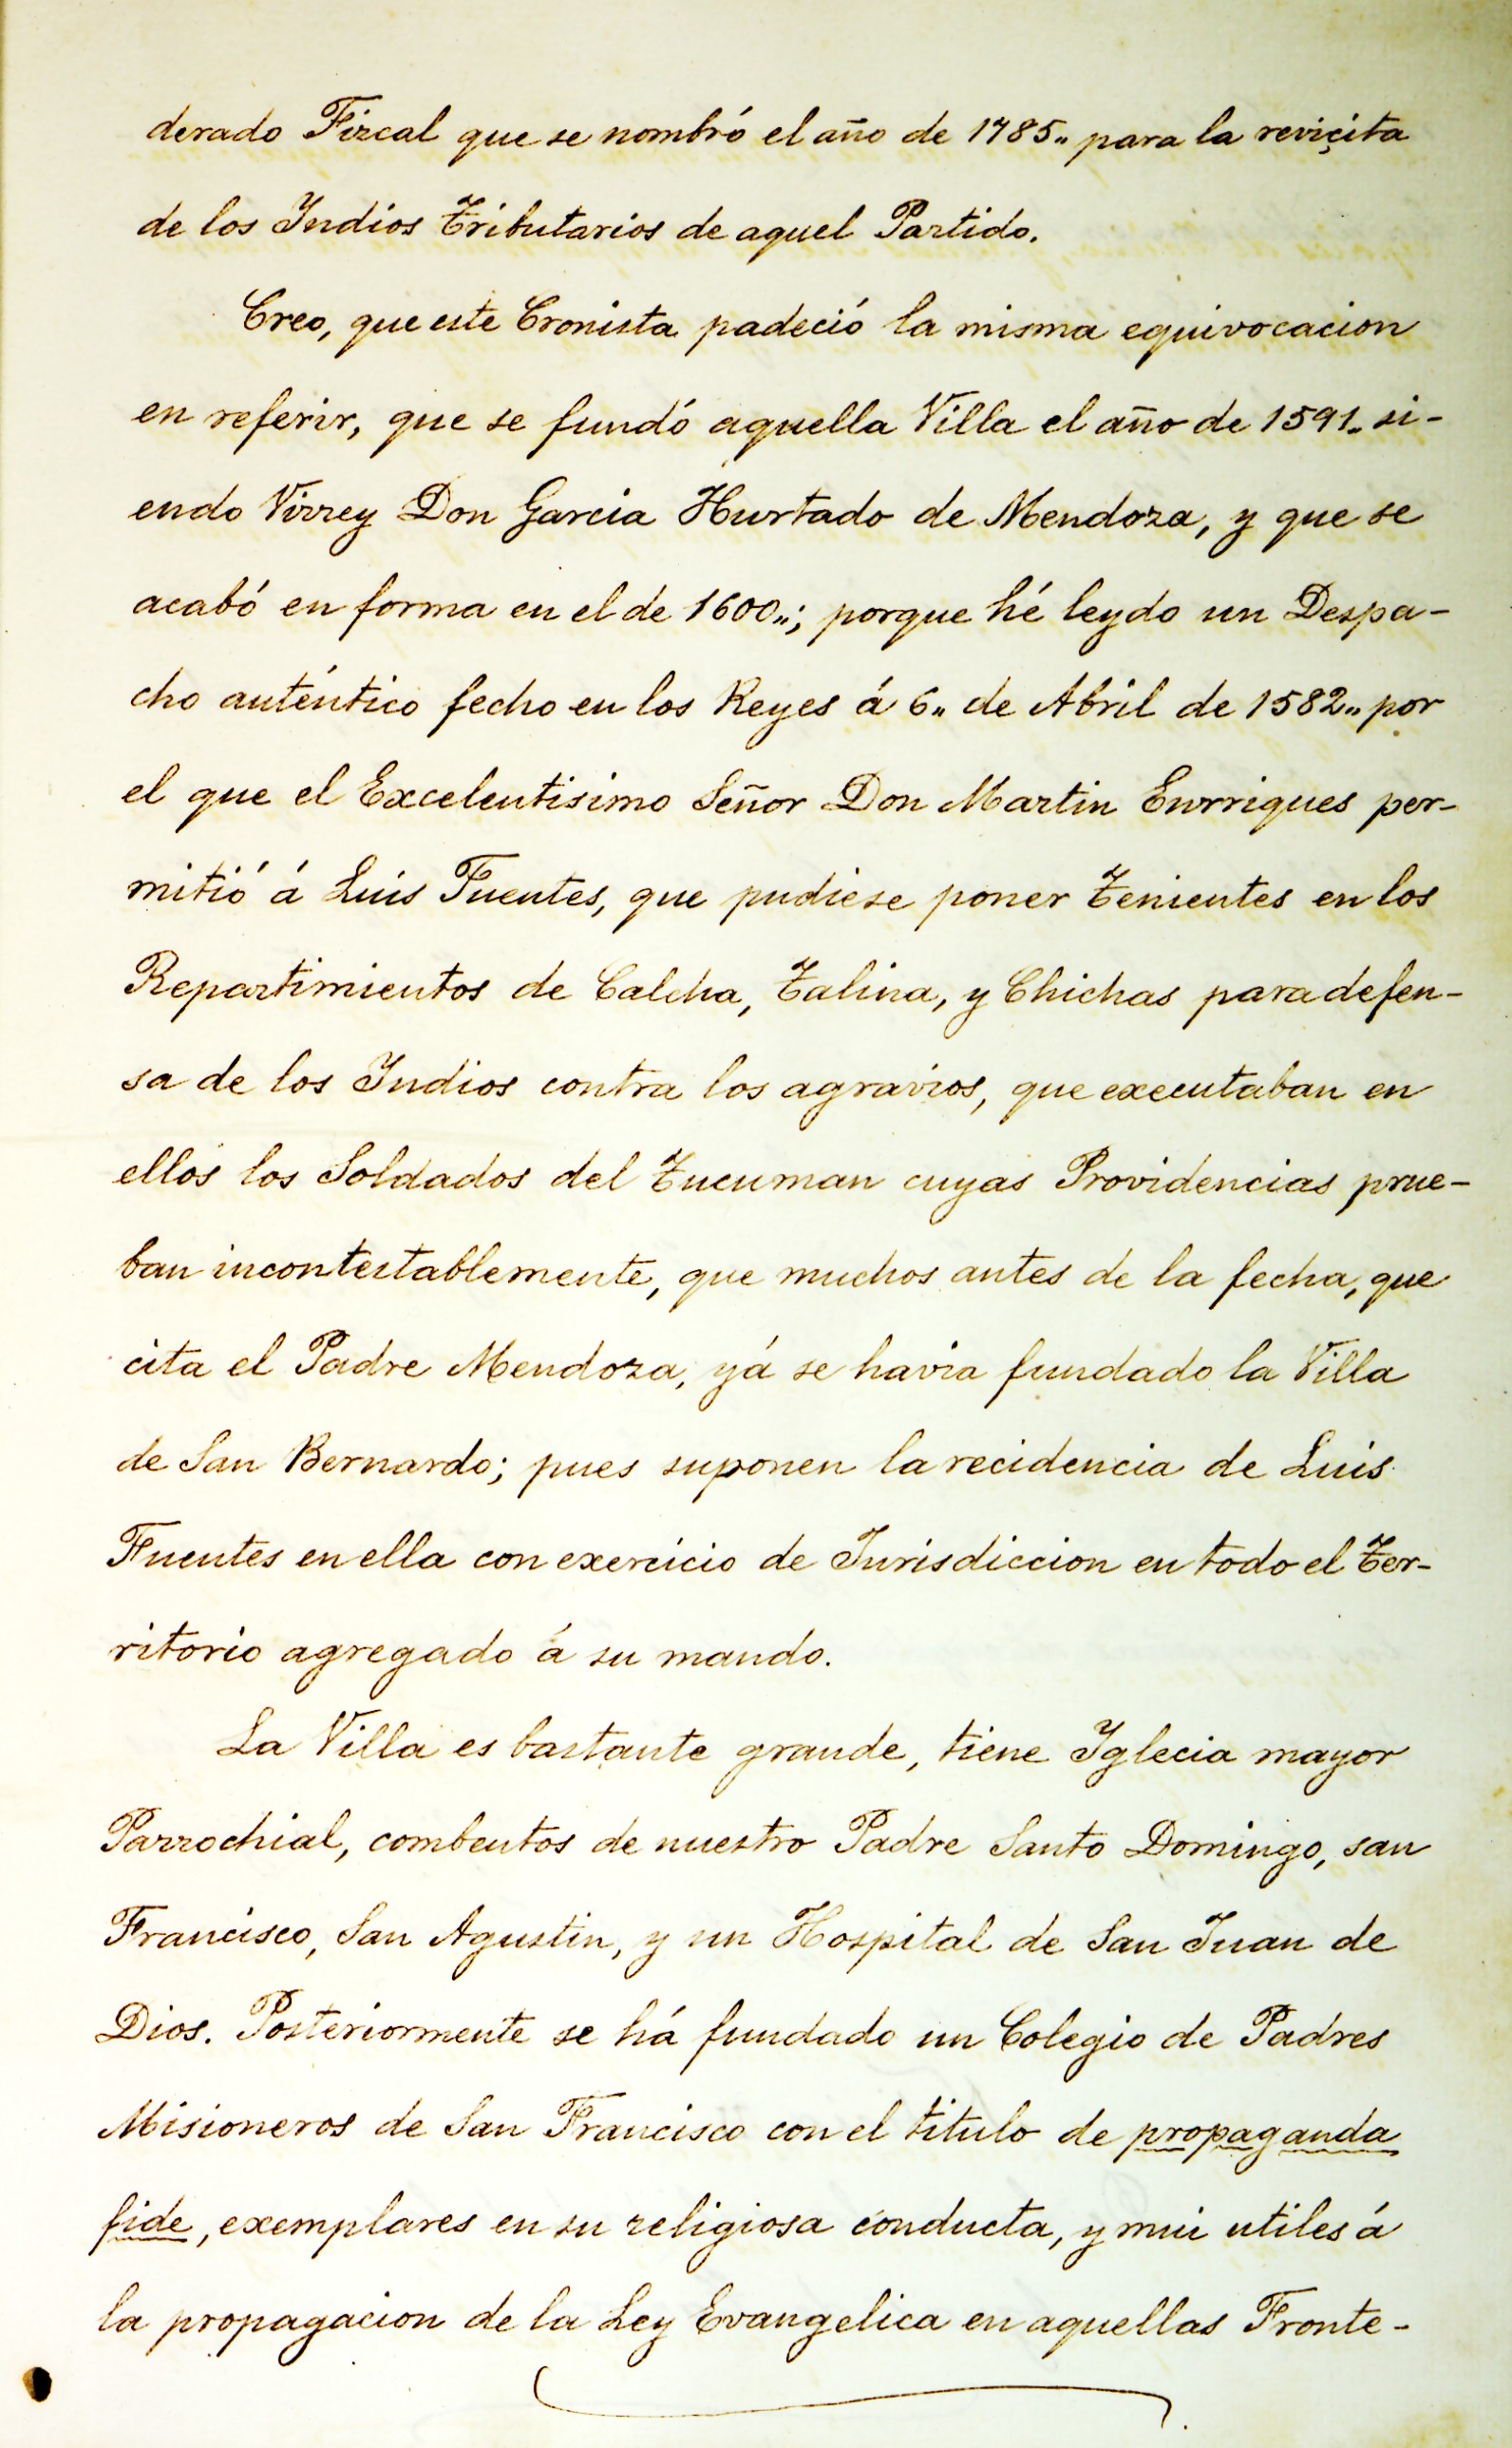 derado Fizcal que se nombró el año de 1785,, para la reviçita
de los Indios Tributarios de aquel Partido.
Creo, que este Cronista padeció la misma equivocacion
en referir, que se fundó aquella Villa el año de 1591. si-
endo Virrey Don Garcia Hurtado de Mendoza, y que se
acabó en forma en el de 1600,,; porque hé leydo un Despa-
cho auténtico fecho en los Reyes á 6,, de Abril de 1582,, por
el que el Excelentisimo Señor Don Martin Enrriques per-
mitió á Luis Fuentes, que pudiese poner Tenientes en los
Repartimientos de Calcha, Talina, y Chichas para defen-
sa de los Indios contra los agravios, que executaban en
ellos los Soldados del Tucuman cuyas Providencias prue-
ban incontestablemente, que muchos antes de la fecha, que
cita el Padre Mendoza, yá se havia fundado la Villa
de San Bernardo; pues suponen la recidencia de Luis
Fuentes en ella con exercicio de Jurisdiccion en todo el Ter-
ritorio agregado á su mando.
La Villa es bastante grande, tiene Iglecia mayor
Parrochial, combentos de nuestro Padre Santo Domingo, san
Francisco, San Agustin, y un Hospital de San Juan de
Dios. Posteriormente se há fundado un Colegio de Padres
Misioneros de San Francisco con el titulo de propaganda
fide, exemplares en su religiosa conducta, y mui utiles á
la propagacion de la Ley Evangelica en aquellas Fronte-